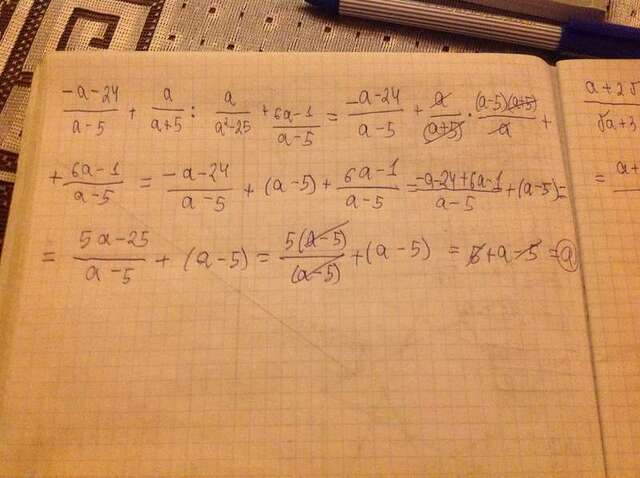 (-a-24)/(a-5) + a/(a+5) : a/(a²-25) + (6a-1)/(a-5) = (-a-24)/(a-5) + a/(a+5) · (a-5)(a+5)/a +
+ (6a-1)/(a-5) = (-a-24)/(a-5) + (a-5) + (6a-1)/(a-5) = (-a-24+6a-1)/(a-5) + (a-5) =
= (5a-25)/(a-5) + (a-5) = 5(a-5)/(a-5) + (a-5) = 5+a-5 = a
a+2√
√a+3
= a+